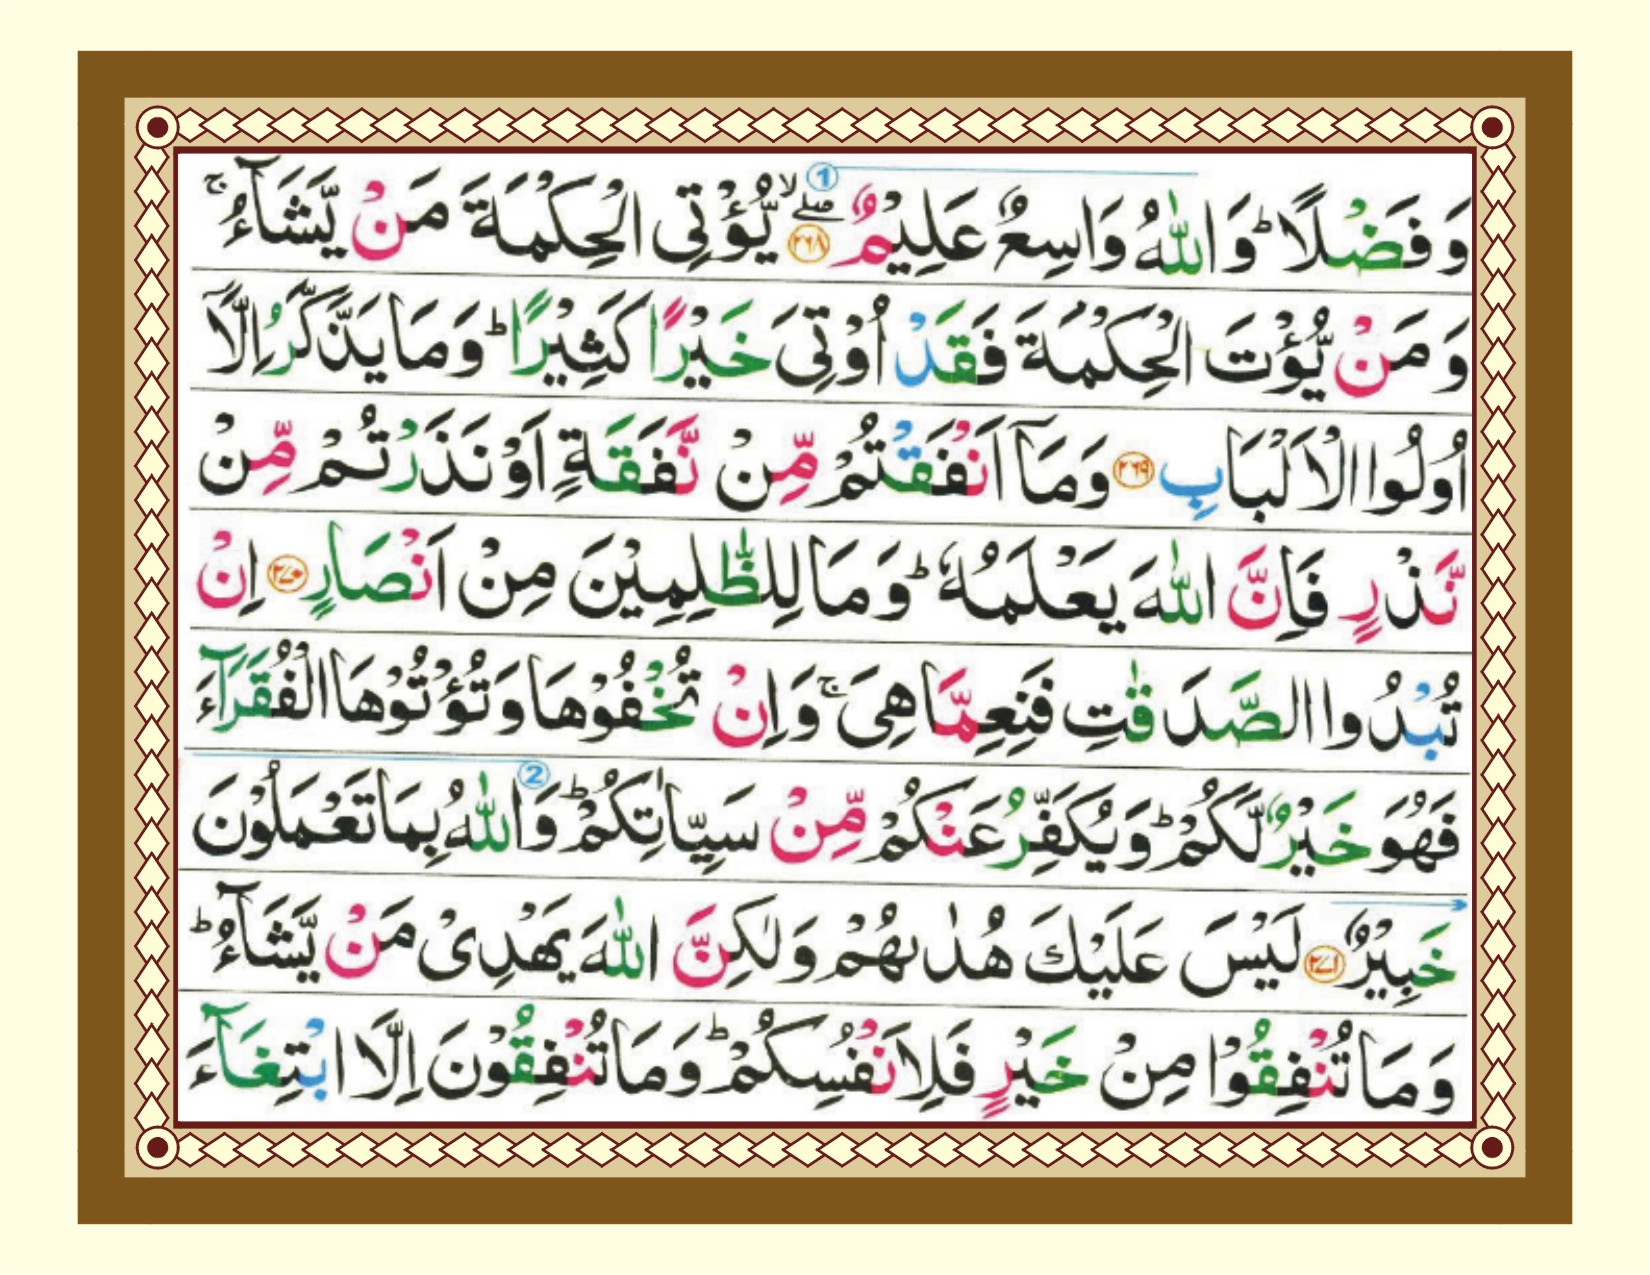 وَفَضْلًا ؕ وَاللّٰهُ وَاسِعٌ عَلِیْمٌ ۖۙ ﴿۲۶۸﴾ 1 یُّؤْتِی الْحِكْمَةَ مَنْ یَّشَآءُ ۚ
وَمَنْ یُّؤْتَ الْحِكْمَةَ فَقَدْ اُوْتِیَ خَیْرًا كَثِیْرًا ؕ وَمَا یَذَّكَّرُ اِلَّاۤ
اُولُوا الْاَلْبَابِ ﴿۲۶۹﴾ وَمَاۤ اَنْفَقْتُمْ مِّنْ نَّفَقَةٍ اَوْ نَذَرْتُمْ مِّنْ
نَّذْرٍ فَاِنَّ اللّٰهَ یَعْلَمُهٗ ؕ وَمَا لِلظّٰلِمِیْنَ مِنْ اَنْصَارٍ ﴿۲۷۰﴾ اِنْ
تُبْدُوا الصَّدَقٰتِ فَنِعِمَّا هِیَ ۚ وَاِنْ تُخْفُوْهَا وَتُؤْتُوْهَا الْفُقَرَآءَ
فَهُوَ خَیْرٌ لَّكُمْ ؕ وَیُكَفِّرُ عَنْكُمْ مِّنْ سَیِّاٰتِكُمْ ؕ 2 وَاللّٰهُ بِمَا تَعْمَلُوْنَ
خَبِیْرٌ ﴿۲۷۱﴾ لَیْسَ عَلَیْكَ هُدٰىهُمْ وَلٰكِنَّ اللّٰهَ یَهْدِیْ مَنْ یَّشَآءُ ؕ
وَمَا تُنْفِقُوْا مِنْ خَیْرٍ فَلِاَنْفُسِكُمْ ؕ وَمَا تُنْفِقُوْنَ اِلَّا ابْتِغَآءَ